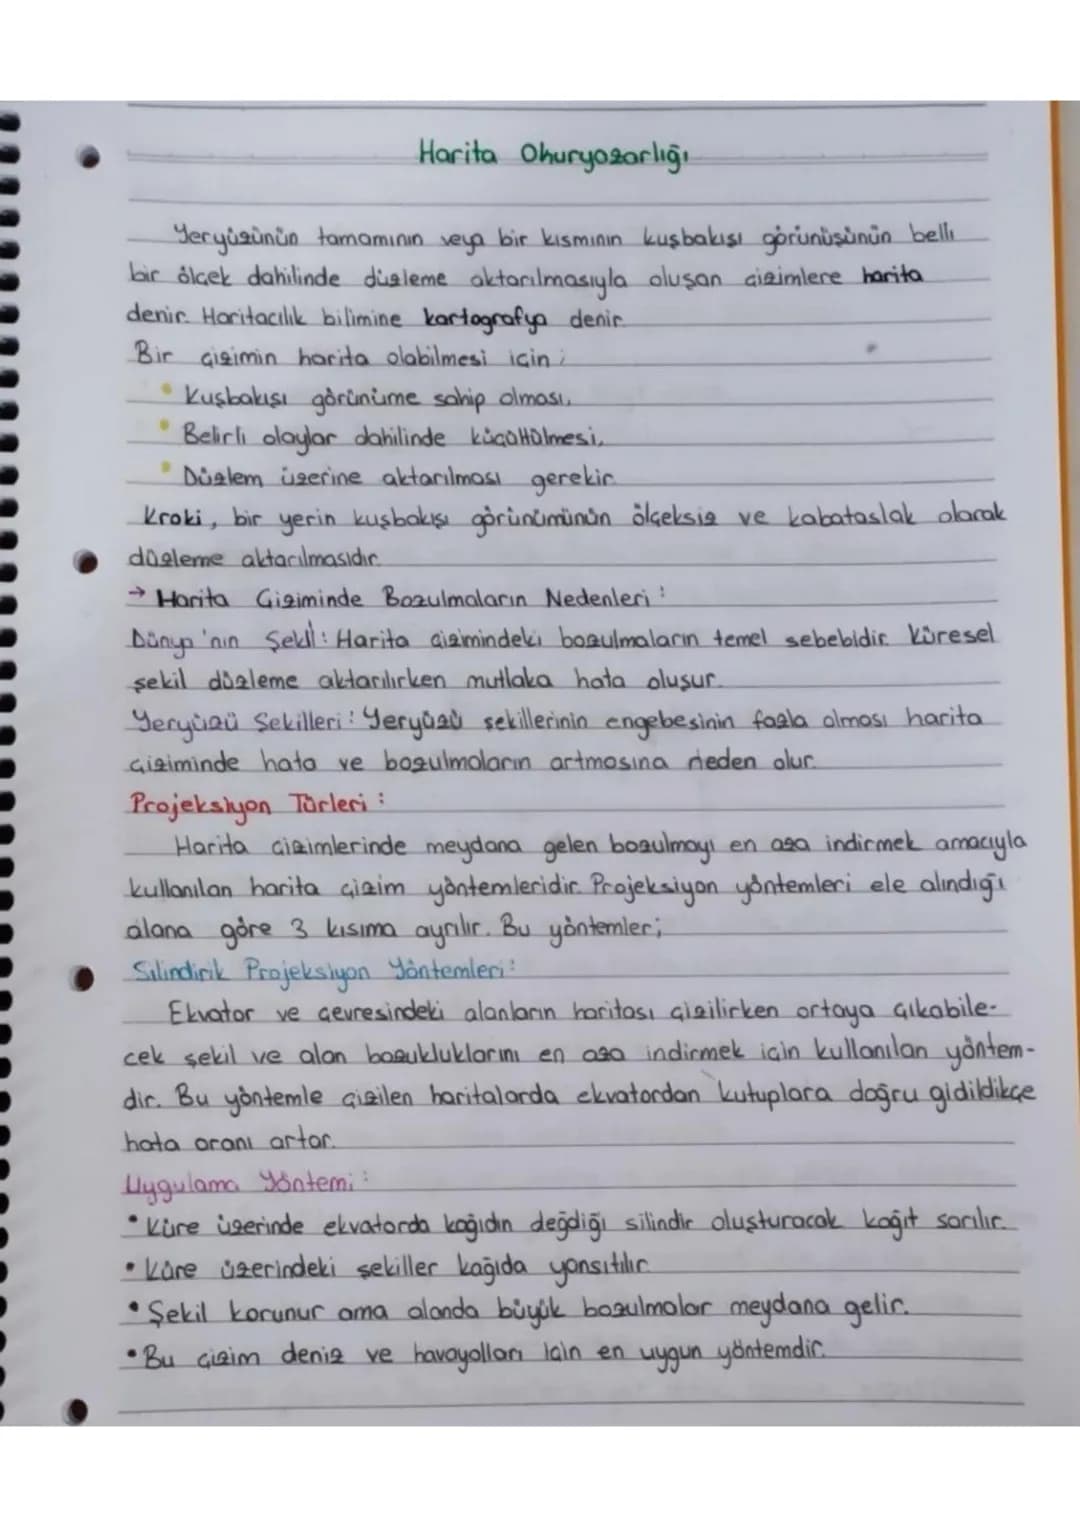 Harita Okuryazarlığı
Yeryüzünün tamamının veya bir kısmının kuşbakışı görünüşünün belli
bir ölçek dahilinde düzleme aktarılmasıyla oluşan çizimlere harita
denir. Haritacılık bilimine kartografya denir.
Bir çizimin harita olabilmesi için;
• Kuşbakışı görünüme sahip olması,
• Belirli olaylar dahilinde küçültülmesi,
• Düzlem üzerine aktarılması gerekir.
Kroki, bir yerin kuşbakışı görünümünün ölçeksiz ve kabataslak olarak
düzleme aktarılmasıdır.
→ Harita Çiziminde Bozulmaların Nedenleri:
Dünya'nın Şekli: Harita çizimindeki bozulmaların temel sebebidir. Küresel
şekil düzleme aktarılırken mutlaka hata oluşur.
Yeryüzü Şekilleri: Yeryüzü şekillerinin engebesinin fazla olması harita
çiziminde hata ve bozulmaların artmasına neden olur.
Projeksiyon Türleri:
Harita çizimlerinde meydana gelen bozulmayı en aza indirmek amacıyla
kullanılan harita çizim yöntemleridir. Projeksiyon yöntemleri ele alındığı
alana göre 3 kısıma ayrılır. Bu yöntemler;
Silindirik Projeksiyon Yöntemleri:
Ekvator ve çevresindeki alanların haritası çizilirken ortaya çıkabile-
cek şekil ve alan bozukluklarını en aza indirmek için kullanılan yöntem-
dir. Bu yöntemle çizilen haritalarda ekvatordan kutuplara doğru gidildikçe
hata oranı artar.
Uygulama Yöntemi:
• Küre üzerinde ekvatorda kağıdın değdiği silindir oluşturacak kağıt sarılır.
• Küre üzerindeki şekiller kağıda yansıtılır.
• Şekil korunur ama alanda büyük bozulmalar meydana gelir.
• Bu çizim deniz ve havayolları için en uygun yöntemdir.